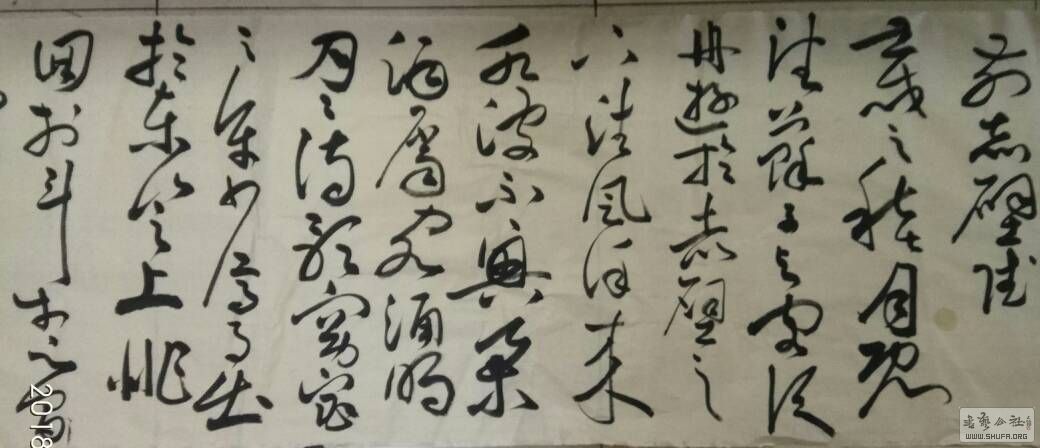 前赤壁赋
壬戌之秋七月既
望蘇子与客泛
舟遊於赤壁之
下清風徐来
水波不興举
酒属客诵明
月之诗歌窈窕
之章少焉月出
於東山之上徘
徊於斗牛之间
2018
WWW.SHUFA.ORG